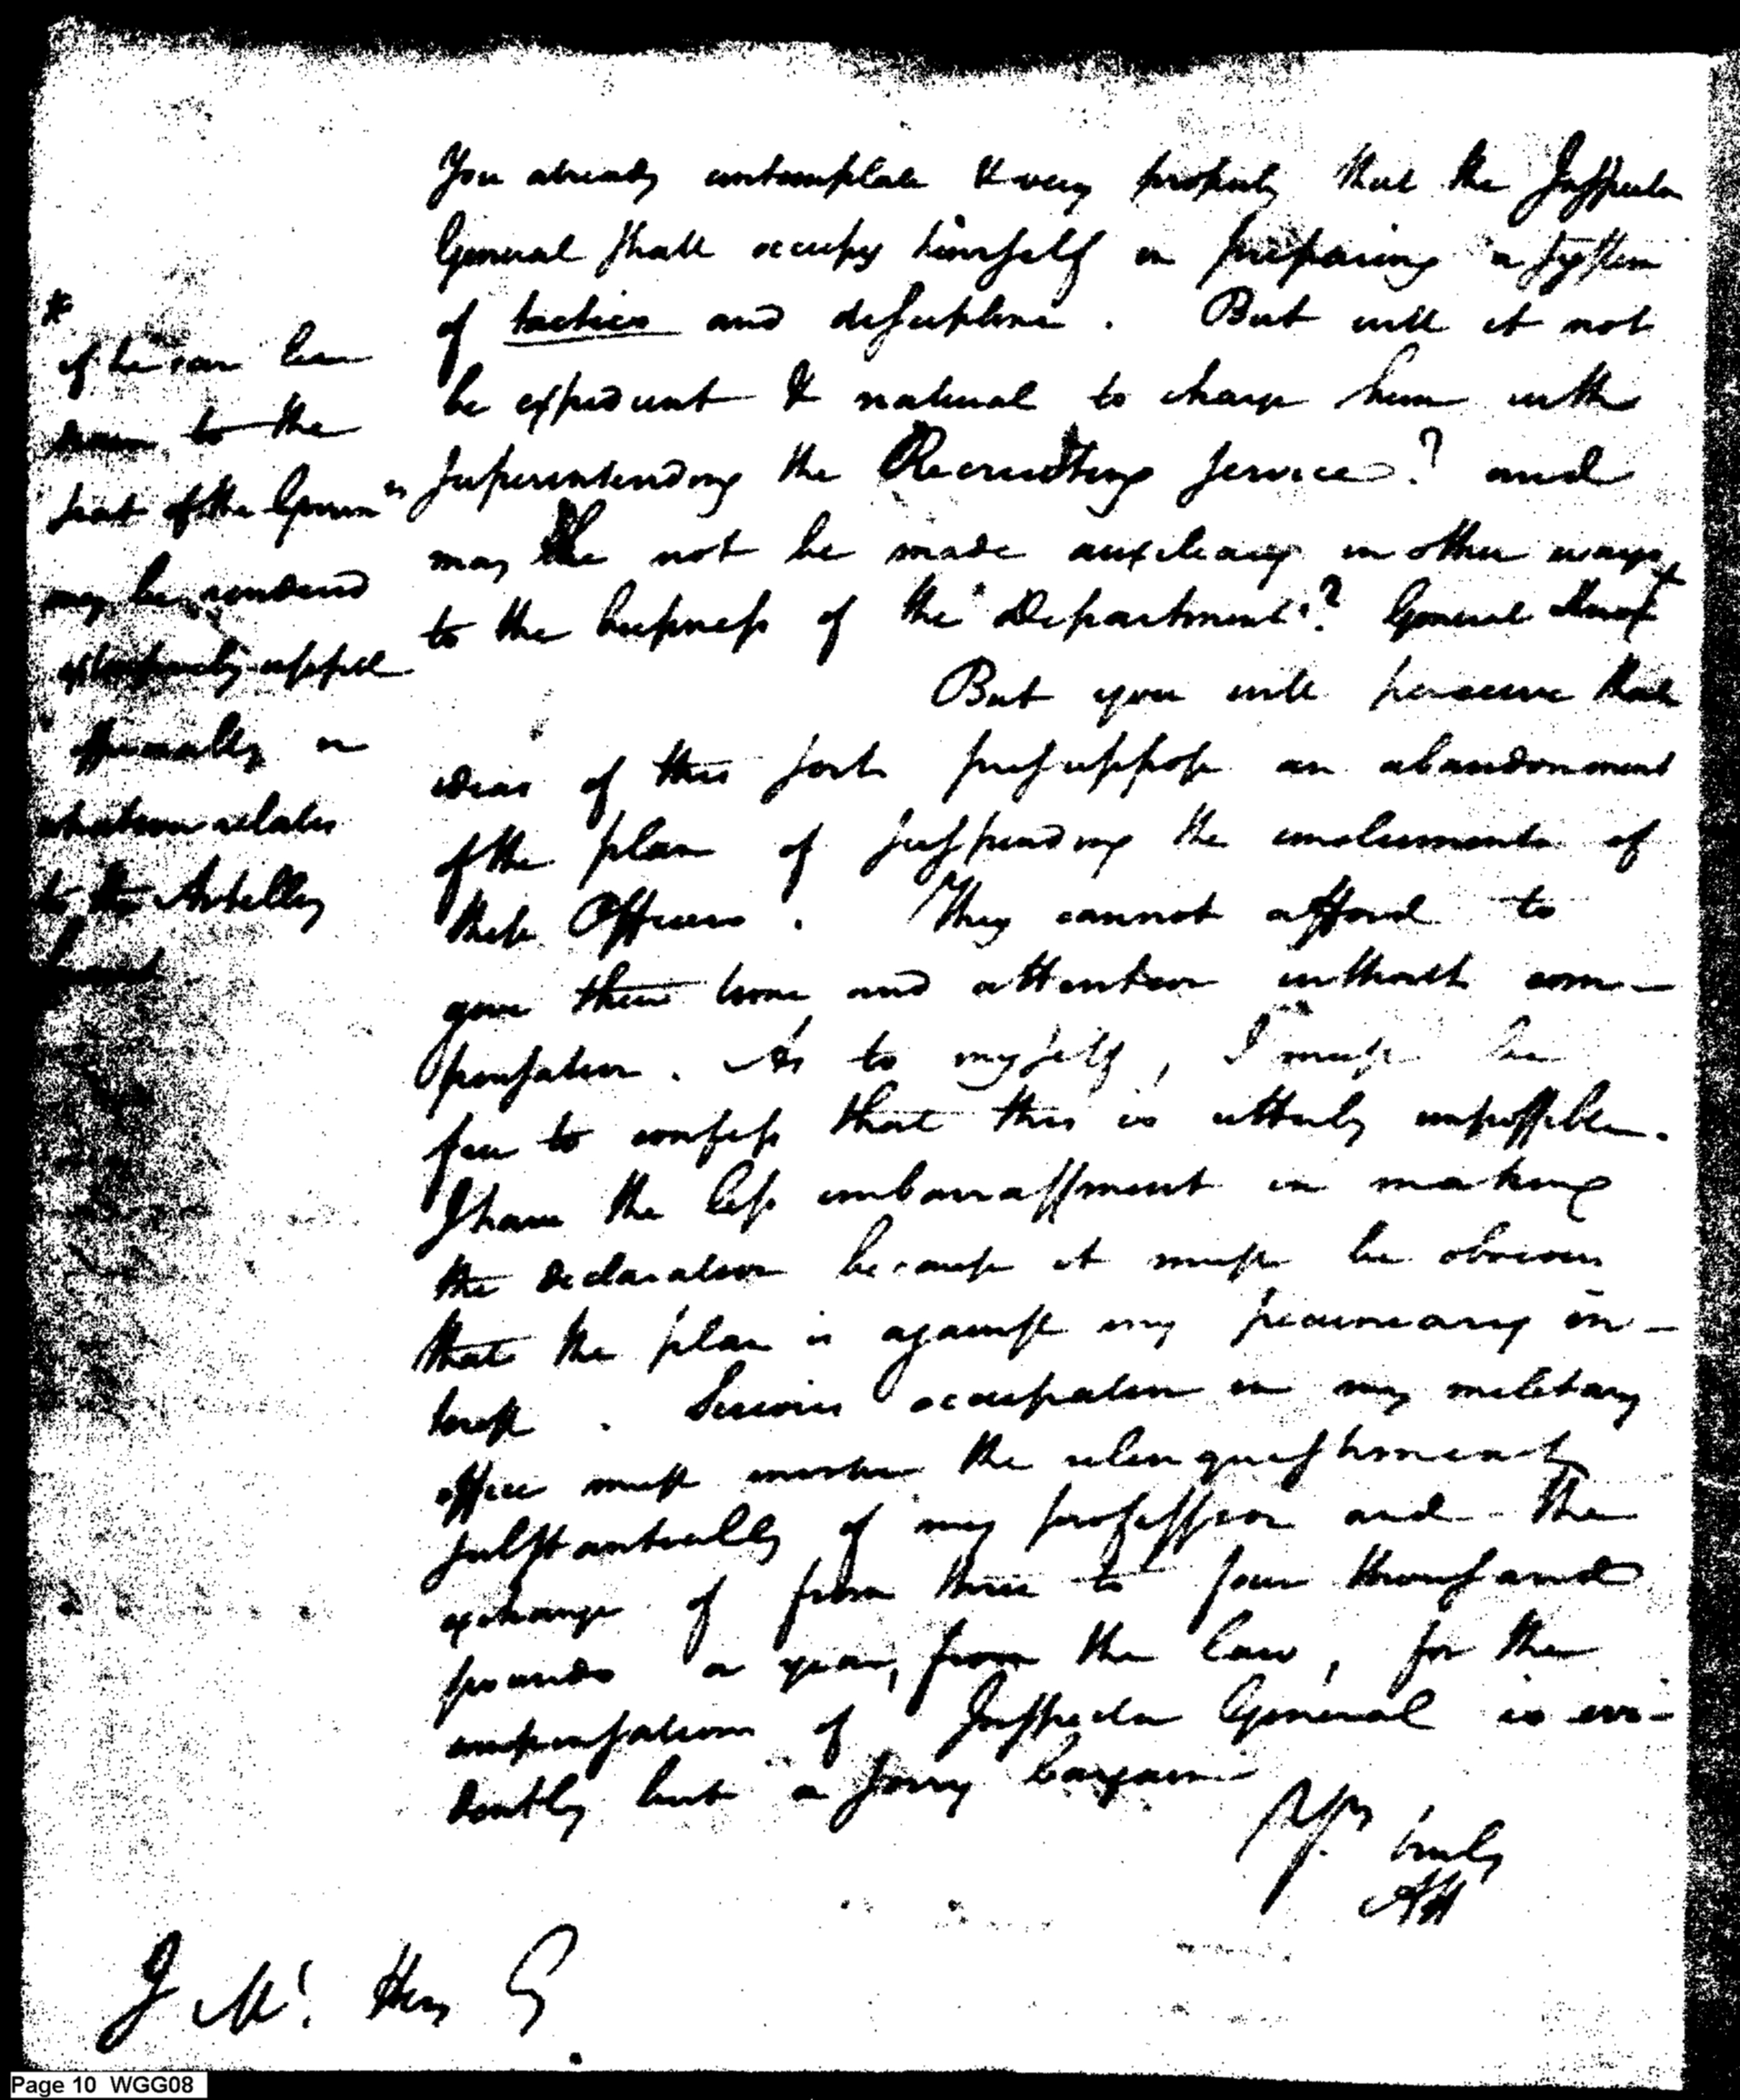 You already contemplate & very properly that the Inspector
General shall occupy himself in preparing a system
of tactics and discipline. But will it not
be expedient & natural to charge him with
superintending the Recruiting service? and
may he not be made auxiliary in other ways
to the business of the Department? General Knox +
But you will perceive that
ideas of this sort presuppose an abandonment
of the plan of suspending the emoluments of
these Officers. They cannot afford to
give their time and attention without com-
pensation. As to myself, I must be
free to confess that this is utterly impossible.
I have the less embarrassment in making
the declaration because it must be obvious
that the plan is against my pecuniary in-
terest. Serious occupation in my military
office must involve the relinquishment
substantially of my profession and the
exchange of from three to four thousand
pounds a year, from the law, for the
compensation of Inspector General is evi-
dently but a sorry bargain
Yrs. truly
AH
*
if he can be
drawn to the
seat of the Governt
may be rendered
extensively useful
especially in
whatever relates
to the Artillery
J Mc. Hen Esq
Page 10 WGG08